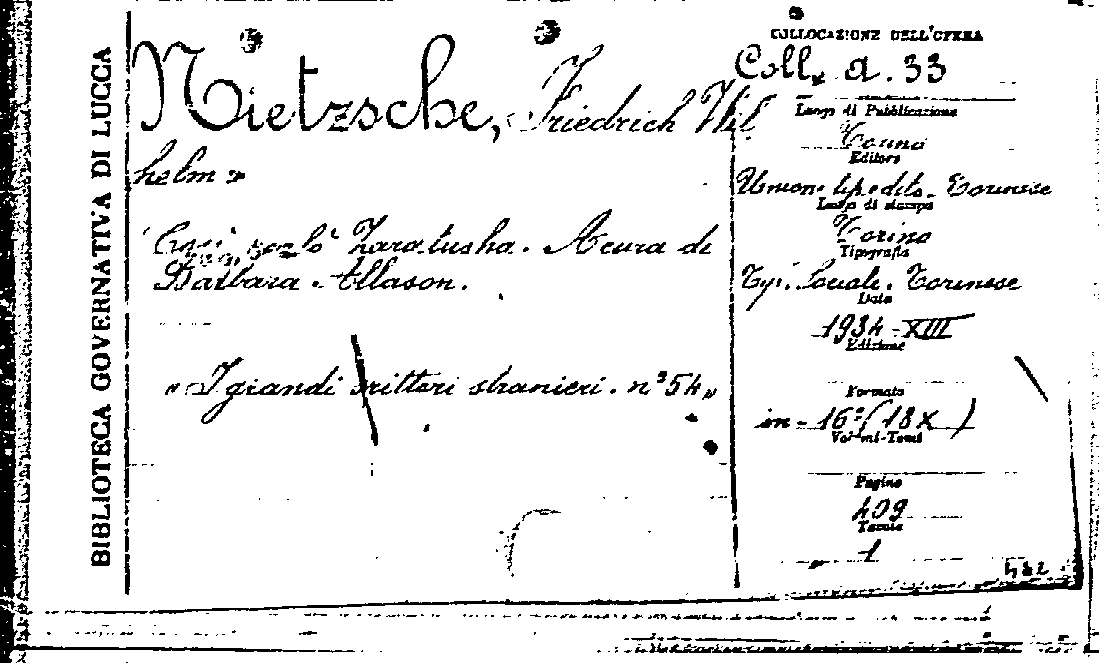 BIBLIOTECA GOVERNATIVA DI LUCCA
Nietzsche, Friedrich Wil
helm
Così parlò Zaratustra. A cura di
Barbara Allason.
"I grandi scrittori stranieri. n° 54"
COLLOCAZIONE DELL'OPERA
Coll. a. 33
Luogo di Pubblicazione
Torino
Editore
Unione tip. edit. Torinese
Luogo di stampa
Torino
Tipografia
Tip. Sociale. Torinese
Data
1934-XIII
Edizione
Formato
in-16° (18x )
Volumi-Tomi
Pagine
409
Tavole
1